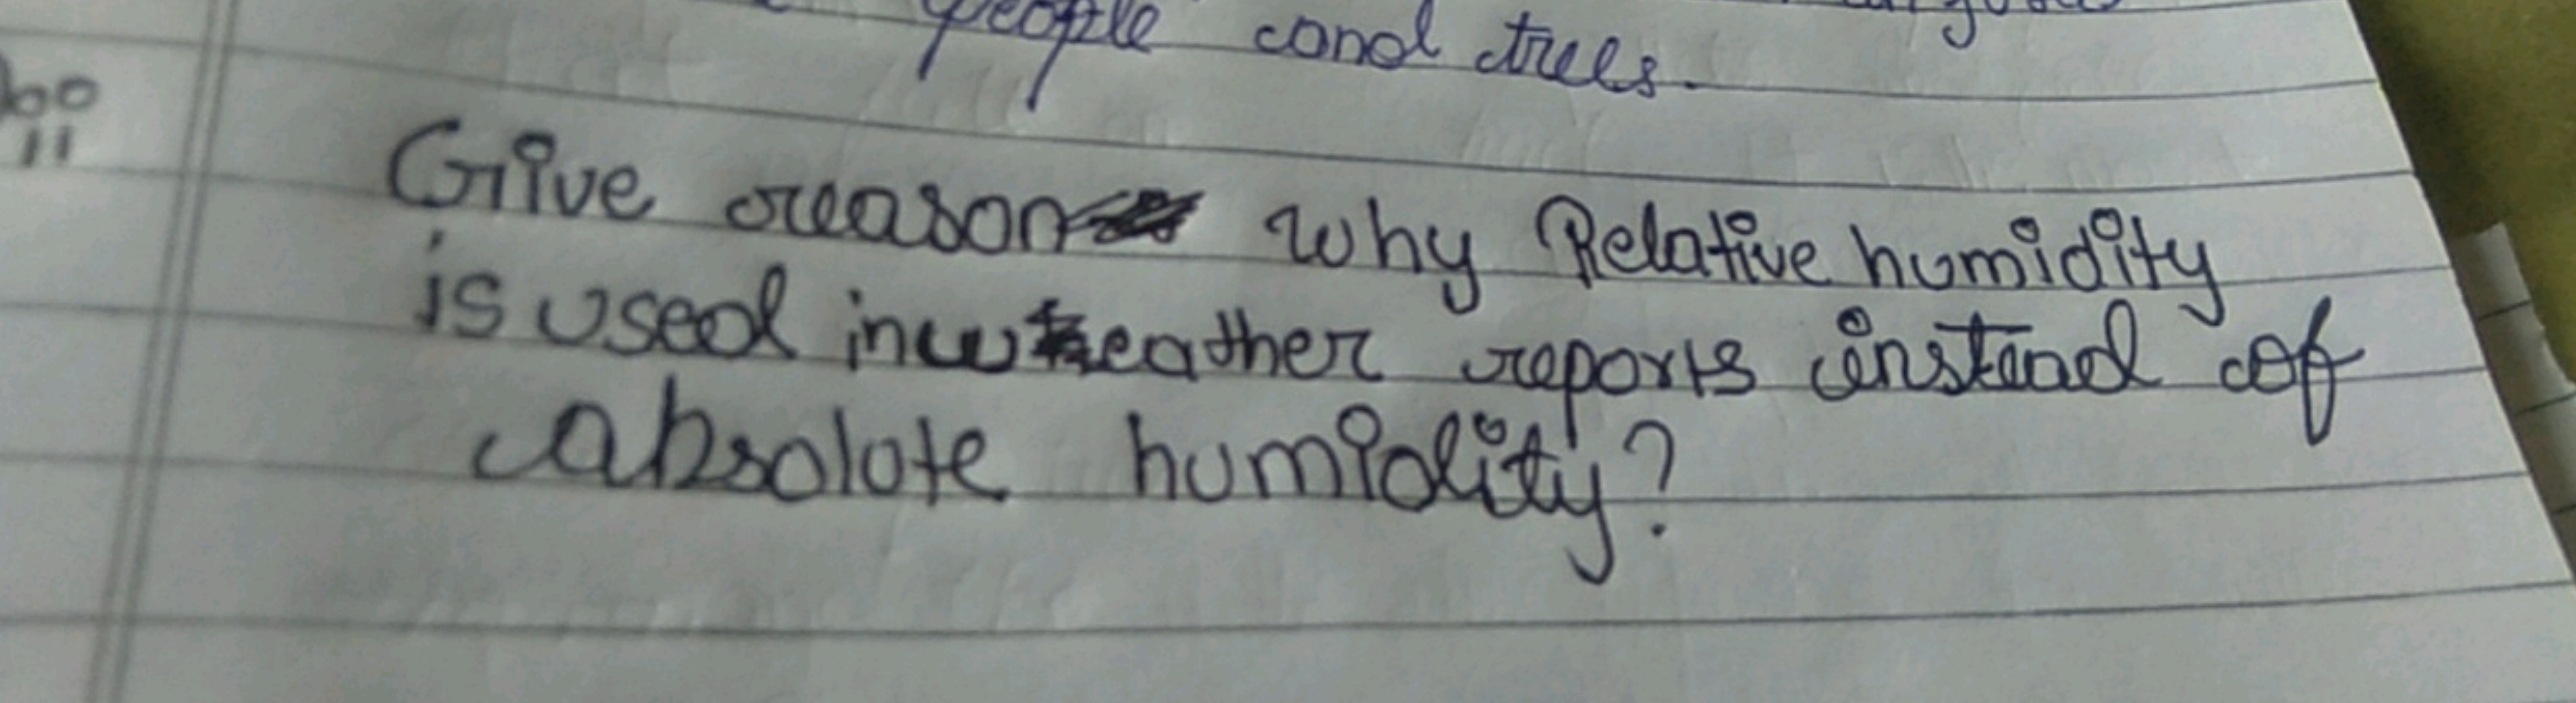 people and trees.
Give reason why Relative humidity
is used in weather reports instead of
absolute humidity?